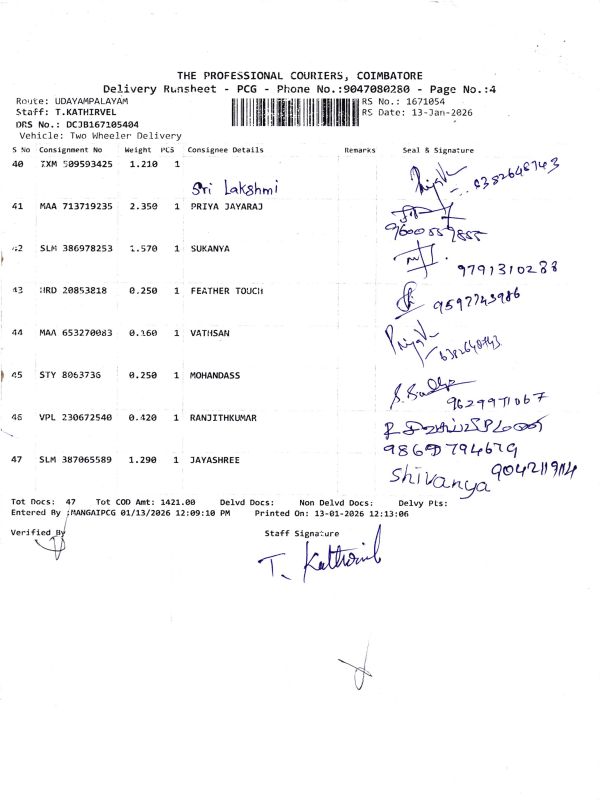 THE PROFESSIONAL COURIERS, COIMBATORE
Delivery Runsheet - PCG - Phone No.:9047080280 - Page No.:4
Route: UDAYAMPALAYAM RS No.: 1671054
Staff: T.KATHIRVEL RS Date: 13-Jan-2026
DRS No.: DCJB167105404
Vehicle: Two Wheeler Delivery
S No Consignment No Weight PCS Consignee Details Remarks Seal & Signature
40 TXM 509593425 1.210 1
Sri Lakshmi
41 MAA 713719235 2.350 1 PRIYA JAYARAJ
42 SLM 386978253 1.570 1 SUKANYA
9791310288
43 HRD 20853818 0.250 1 FEATHER TOUCH
9597743986
44 MAA 653270083 0.160 1 VATHSAN
45 STY 8063736 0.250 1 MOHANDASS
46 VPL 230672540 0.420 1 RANJITHKUMAR
47 SLM 387065589 1.290 1 JAYASHREE
Shivanya
Tot Docs: 47 Tot COD Amt: 1421.00 Delvd Docs: Non Delvd Docs: Delvy Pts:
Entered By :MANGAIPCG 01/13/2026 12:09:10 PM Printed On: 13-01-2026 12:13:06
Verified By Staff Signature